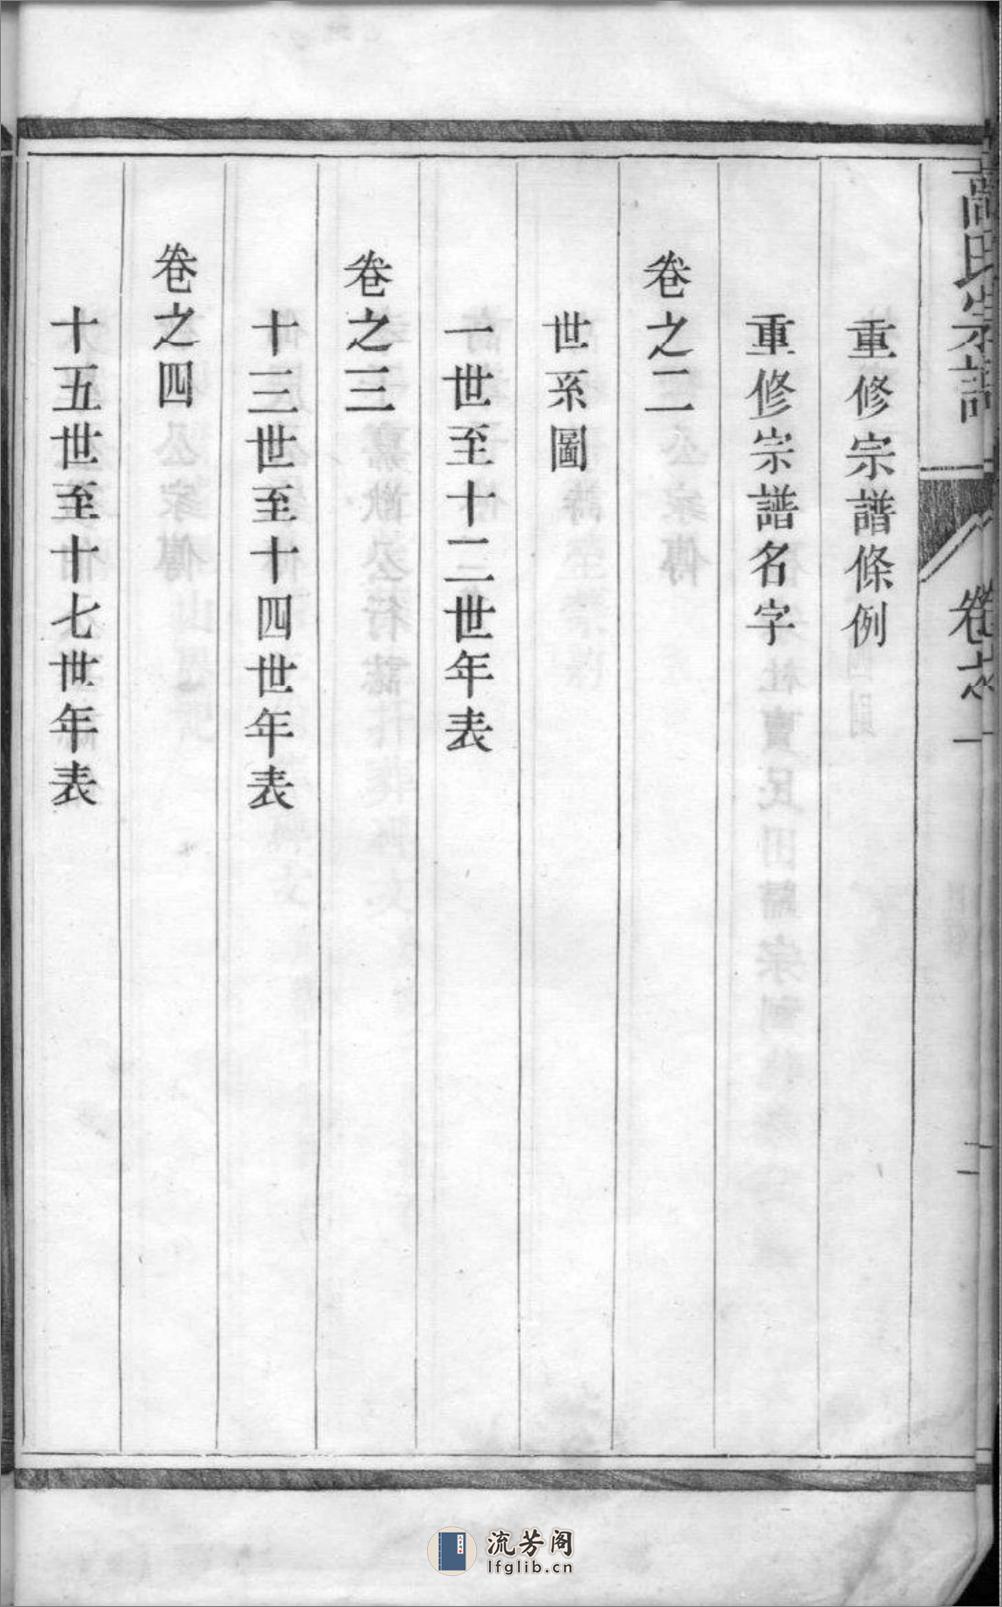 高氏宗譜
卷首
一
重修宗譜條例
重修宗譜名字
卷之二
世系圖
一世至十二世年表
卷之三
十三世至十四世年表
卷之四
十五世至十七世年表
流芳阁
lfglib.cn